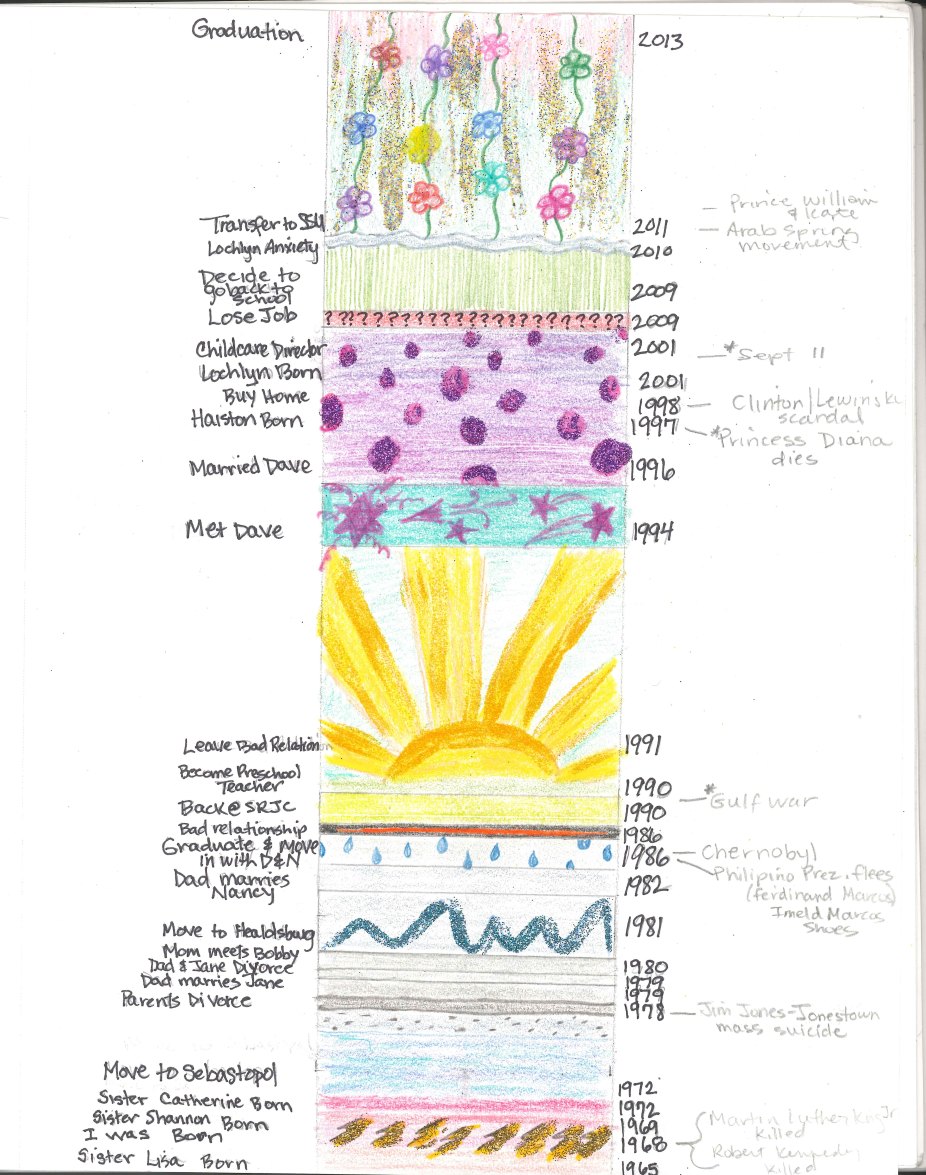 Graduation 2013
Prince William
& Kate
Transfer to SSU 2011 Arab Spring
movement
Lochlyn Anxiety 2010
Decide to
go back to
school 2009
Lose Job ? ? ? ? ? ? ? ? ? ? ? ? ? ? ? ? ? ? 2009
Childcare Director 2001 *Sept 11
Lochlyn Born 2001
Buy Home 1998 Clinton/Lewinski
scandal
Halston Born 1997 *Princess Diana
dies
Married Dave 1996
Met Dave 1994
Leave Bad Relation 1991
Become Preschool
Teacher 1990
Back @ SRJC 1990 *Gulf War
Bad relationship 1986
Graduate & Move
in with D&N 1986 Chernobyl
Philipino Prez. flees
(ferdinand Marcos)
Imeld Marcos
Shoes
Dad marries
Nancy 1982
Move to Healdsburg 1981
Mom meets Bobby
Dad & Jane Divorce 1980
Dad marries Jane 1979
1979
Parents Divorce 1978 Jim Jones-Jonestown
mass suicide
Move to Sebastopol 1972
Sister Catherine Born 1972
Sister Shannon Born 1969
I was Born 1968
Martin Luther King Jr
killed
Robert Kennedy
killed
Sister Lisa Born 1965